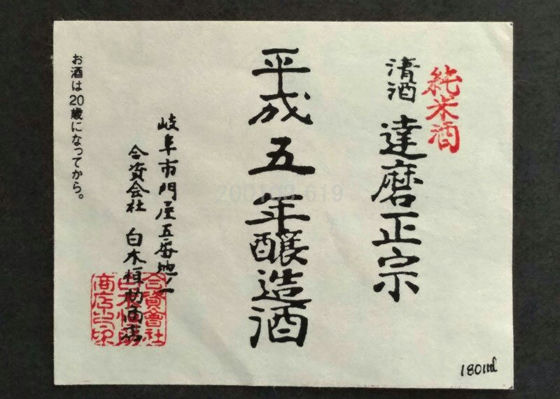 純米酒
清酒 達磨正宗
平成五年醸造酒
岐阜市門屋五番地ノ一
合資会社 白木恒助商店
お酒は20歳になってから。
180ml